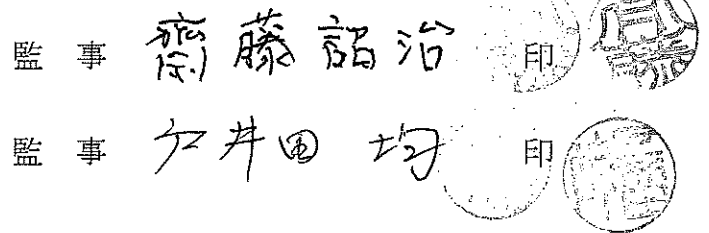 監事 齋藤詔治 印
監事 戸井田 均 印